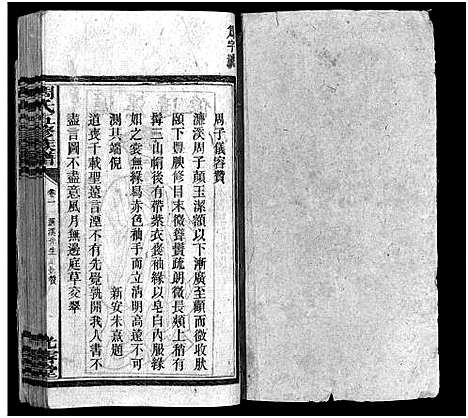 周子儀容贊
濂溪周子顏玉潔額以下漸廣至顴而微收狀
頤下豐腴修目末微聳鬚疏朗微長頰上稍有
髯三山帽後有帶紫衣褒袖緣以皂白內服緣
如之裳無緣舄赤色袖手而立清明高遠不可
測其端倪
新安朱熹題
道喪千載聖遠言湮不有先覺孰開我人書不
盡言圖不盡意風月無邊庭草交翠
周氏五修族譜
卷一
濂溪先生
贊